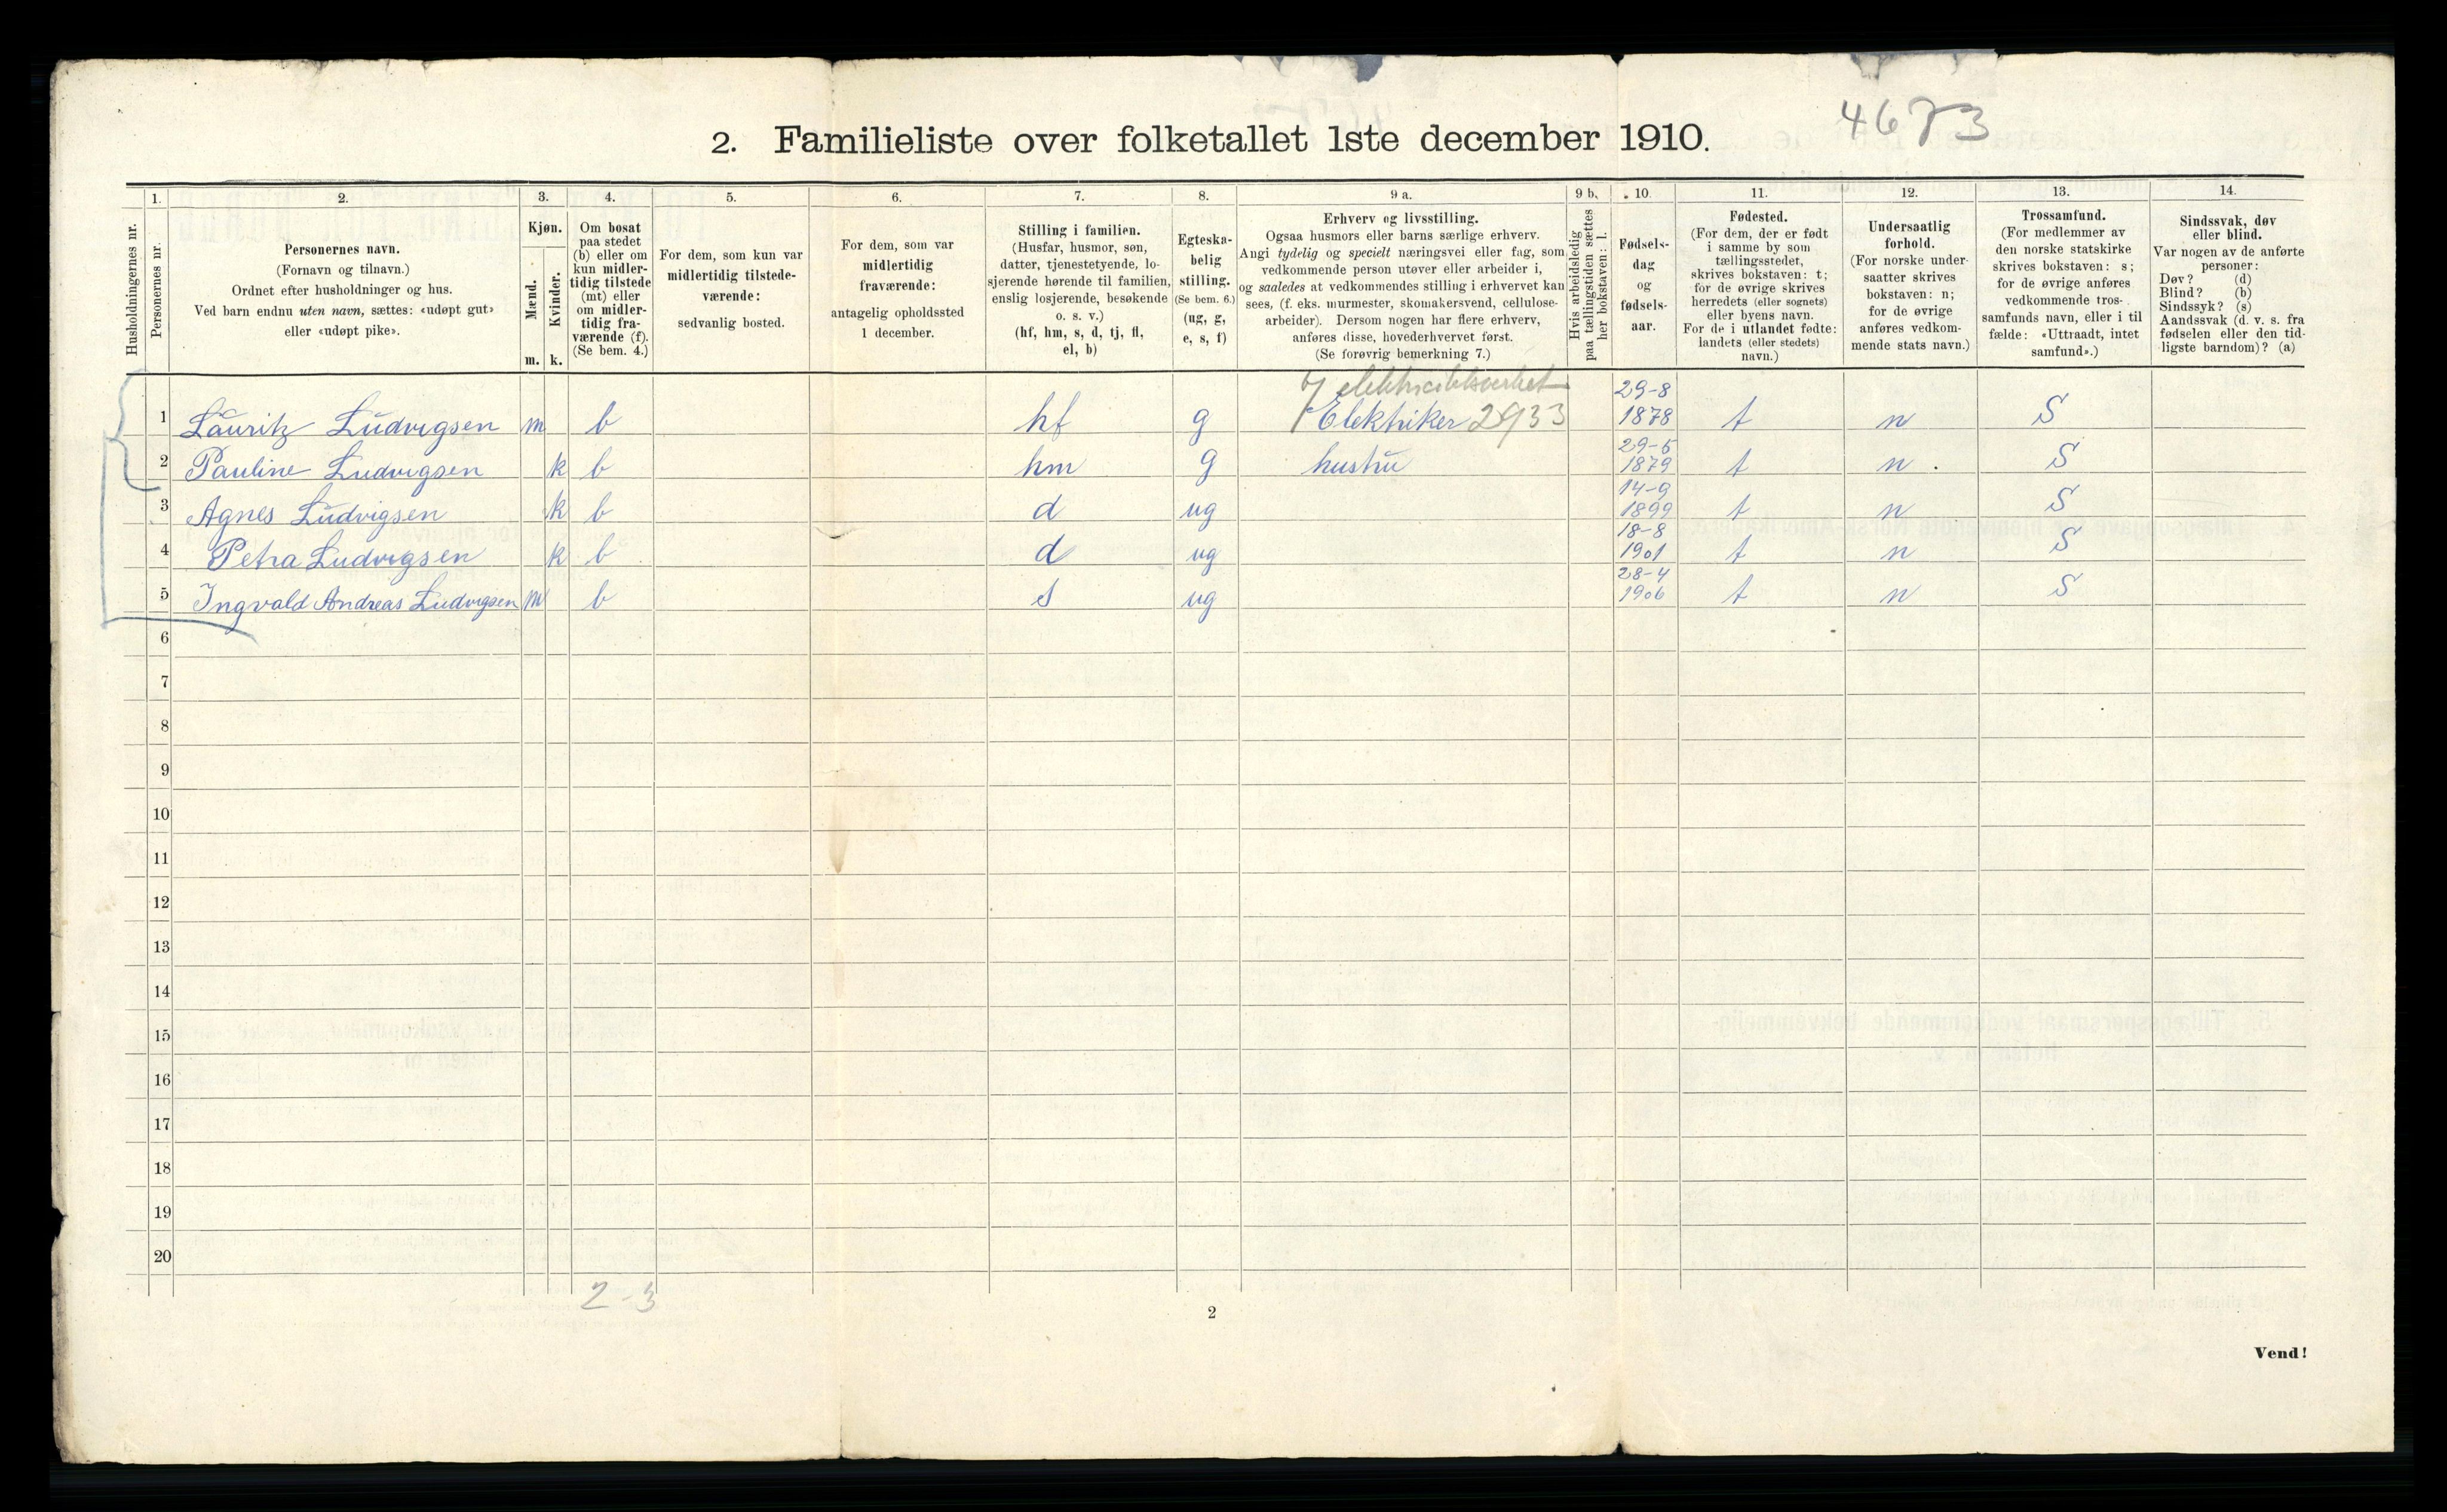 4673
2. Familieliste over folketallet 1ste december 1910.
Husholdningernes nr.
1.
Personernes nr.
2.
Personernes navn.
(Fornavn og tilnavn.)
Ordnet efter husholdninger og hus.
Ved barn endnu uten navn, sættes: «udøpt gut»
eller «udøpt pike».
3.
Kjøn.
Mænd.
Kvinder.
m. k.
4.
Om bosat
paa stedet
(b) eller om
kun midler-
tidig tilstede
(mt) eller
om midler-
tidig fra-
værende (f).
(Se bem. 4.)
5.
For dem, som kun var
midlertidig tilstede-
værende:
sedvanlig bosted.
6.
For dem, som var
midlertidig
fraværende:
antagelig opholdssted
1 december.
7.
Stilling i familien.
(Husfar, husmor, søn,
datter, tjenestetyende, lo-
sjerende hørende til familien,
enslig losjerende, besøkende
o. s. v.)
(hf, hm, s, d, tj, fl,
el, b)
8.
Egteska-
belig
stilling.
(Se bem. 6.)
(ug, g,
e, s, f)
9 a.
Erhverv og livsstilling.
Ogsaa husmors eller barns særlige erhverv.
Angi tydelig og specielt næringsvei eller fag, som
vedkommende person utøver eller arbeider i,
og saaledes at vedkommendes stilling i erhvervet kan
sees, (f. eks. murmester, skomakersvend, cellulose-
arbeider). Dersom nogen har flere erhverv,
anføres disse, hovederhvervet først.
(Se forøvrig bemerkning 7.)
9 b.
Hvis arbeidsledig
paa tællingstiden sættes
her bokstaven: l.
10.
Fødsels-
dag
og
fødsels-
aar.
11.
Fødested.
(For dem, der er født
i samme by som
tællingsstedet,
skrives bokstaven: t;
for de øvrige skrives
herredets (eller sognets)
eller byens navn.
For de i utlandet fødte:
landets (eller stedets)
navn.)
12.
Undersaatlig
forhold.
(For norske under-
saatter skrives
bokstaven: n;
for de øvrige
anføres vedkom-
mende stats navn.)
13.
Trossamfund.
(For medlemmer av
den norske statskirke
skrives bokstaven: s;
for de øvrige anføres
vedkommende tros-
samfunds navn, eller i til
fælde: «Uttraadt, intet
samfund».)
14.
Sindssvak, døv
eller blind.
Var nogen av de anførte
personer:
Døv? (d)
Blind? (b)
Sindssyk? (s)
Aandssvak (d. v. s. fra
fødselen eller den tid-
ligste barndom)? (a)
elektricitetsverket
1 Lauritz Ludvigsen m b hf g Elektriker 2933 29-8 1878 t n S
2 Pauline Ludvigsen k b hm g hustru 29-5 1879 t n. S
3 Agnes Ludvigsen k b d ug 14-9 1899 t n S
4 Petra Ludvigsen k b d ug 18-8 1901 t n S
5 Ingvald Andreas Ludvigsen m b s ug 28-4 1906 t n S
6
7
8
9
10
11
12
13
14
15
16
17
18
19
20
2-3
2
Vend!